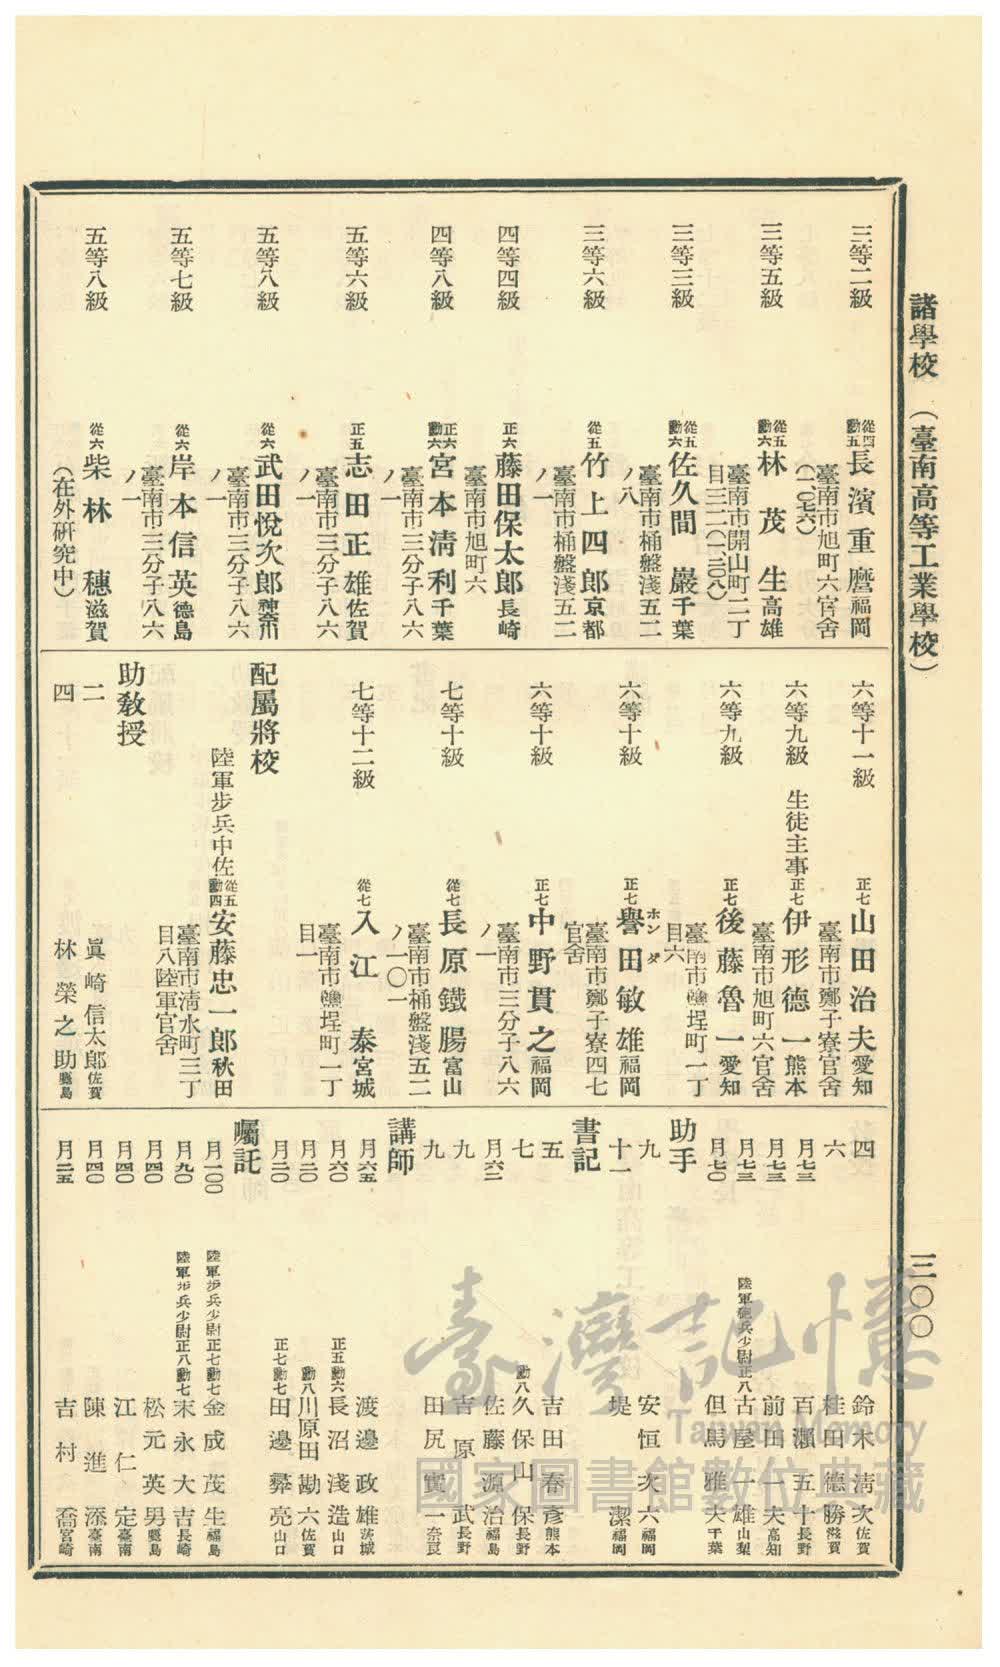 諸學校 (臺南高等工業學校)
三〇〇
三等二級 從四勳五 長濱重麿 福岡
臺南市旭町六官舍
(一〇七六)
三等五級 從五勳六 林茂生 高雄
臺南市開山町二丁
目三二(一二〇八)
三等三級 從五勳六 佐久間巖 千葉
臺南市桶盤淺五二
ノ八
三等六級 從五 竹上四郎 京都
臺南市桶盤淺五二
ノ一
四等四級 正六 藤田保太郎 長崎
臺南市旭町六
四等八級 正六勳六 宮本淸利 千葉
臺南市三分子八六
ノ一
五等六級 正五 志田正雄 佐賀
臺南市三分子八六
ノ一
五等八級 從六 武田悅次郎 神奈川
臺南市三分子八六
ノ一
五等七級 從六 岸本信英 德島
臺南市三分子八六
ノ一
五等八級 從六 柴林穗 滋賀
(在外硏究中)
六等十一級 正七 山田治夫 愛知
臺南市鄭子寮官舍
六等九級 生徒主事 正七 伊形德一 熊本
臺南市旭町六官舍
六等九級 正七 後藤魯一 愛知
臺南市鹽埕町一丁
目六
六等十級 正七 譽田敏雄 福岡
ホンダ
臺南市鄭子寮四七
官舍
六等十級 正七 中野貫之 福岡
臺南市三分子八六
ノ一
七等十級 從七 長原鐵腸 富山
臺南市桶盤淺五二
ノ一〇一
七等十二級 從七 入江泰 宮城
臺南市鹽埕町一丁
目一
配屬將校
陸軍步兵中佐 從五勳四 安藤忠一郎 秋田
臺南市淸水町三丁
目八陸軍官舍
助敎授
二 眞崎信太郎 佐賀
四 林榮之助
四 鈴木淸次 佐賀
六 桂田德勝 滋賀
月七三 百瀨五十 長野
月七三 前田一夫 高知
月七三 陸軍砲兵少尉正八 古屋一雄 山梨
月七〇 但馬雅夫 千葉
助手
九 安恒次六 福岡
十一 堤潔 福岡
書記
五 吉田春彥 熊本
七 勳八 久保山保 長野
月六二 佐藤源治 福島
九 吉原武 長野
九 田尻實一 奈良
講師
月六五 渡邊政雄 茨城
月六〇 正五勳六 長沼淺造 山口
月二〇 勳八 川原田勘六 佐賀
月二〇 正七勳七 田邊彜亮 山口
囑託
月一〇〇 陸軍步兵少尉正七勳七 金成茂生 福島
月九〇 陸軍步兵少尉正八勳七 末永大吉 長崎
月四〇 松元英男
月四〇 江仁定 臺南
月四〇 陳進添 臺南
月二五 吉村喬 宮崎
臺灣記憶
Taiwan Memory
國家圖書館數位典藏